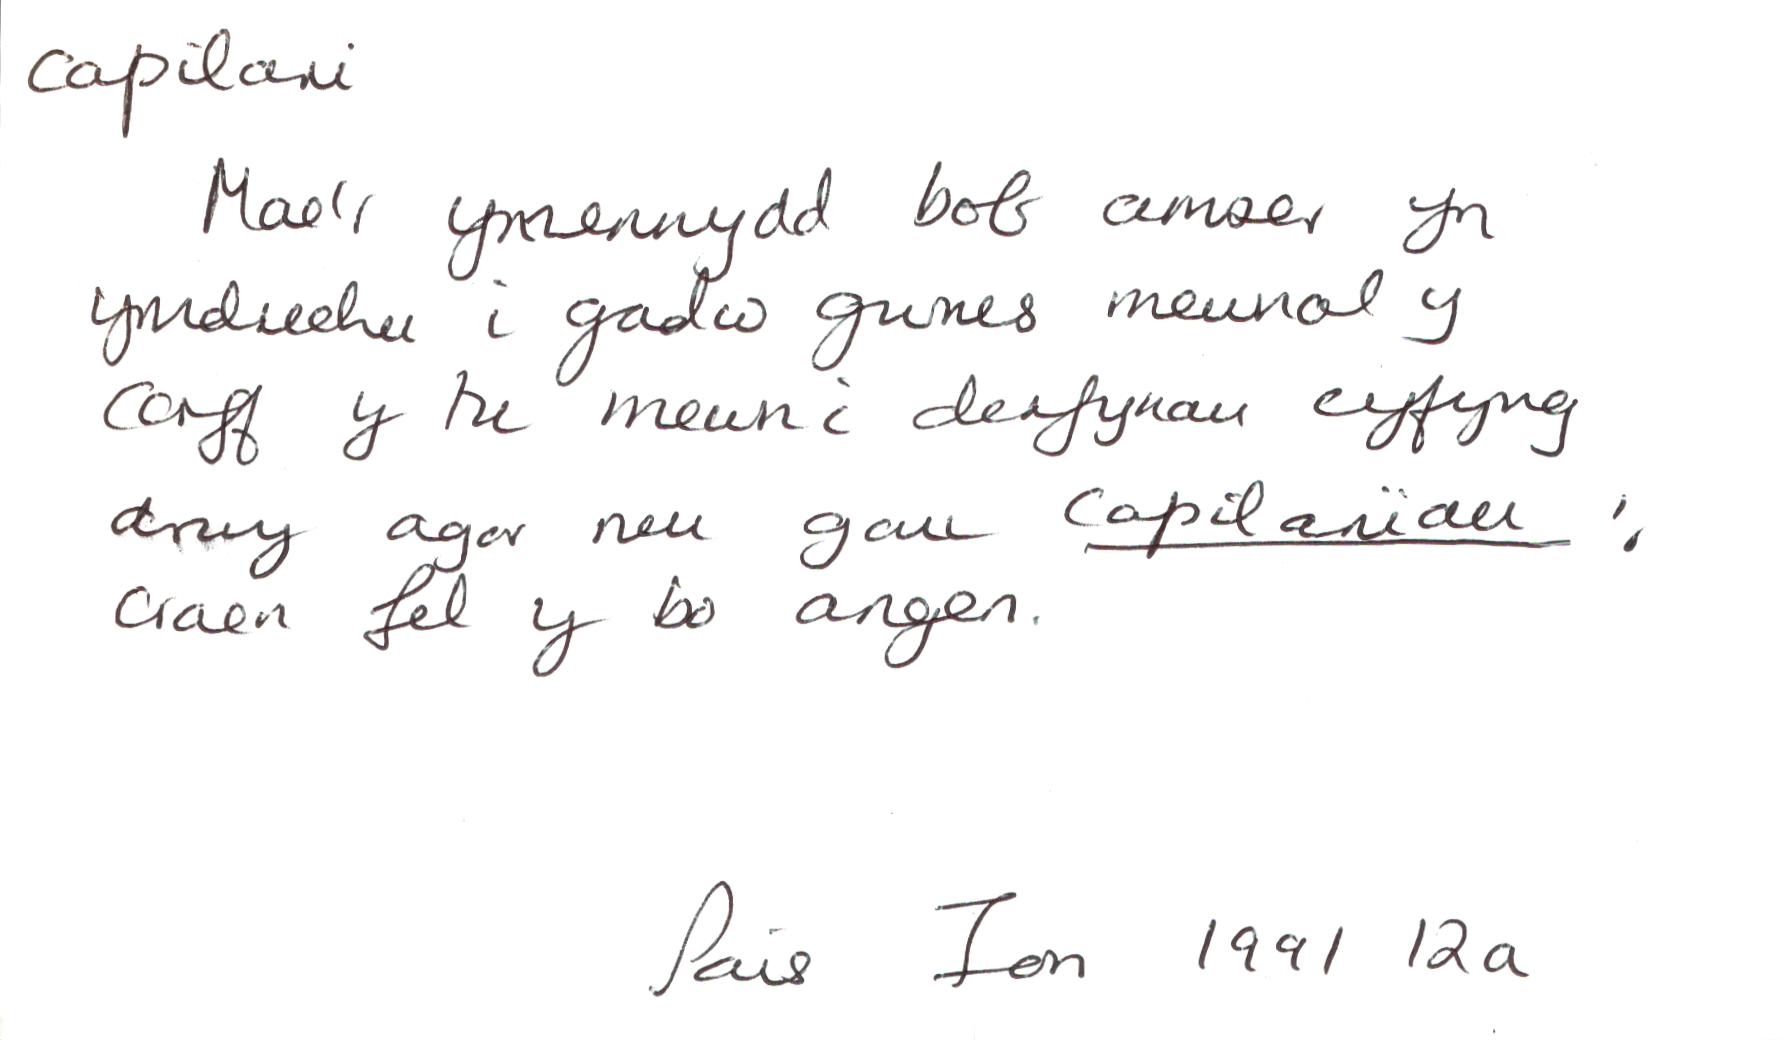 capilari
Mae'r ymennydd bob amser yn
ymdrechu i gadw gwres mewnol y
corff y tu mewn i derfynau cyfyng
drwy agor neu gau capilarïau'r
craen fel y bo angen.
Pais Ion 1991 12a